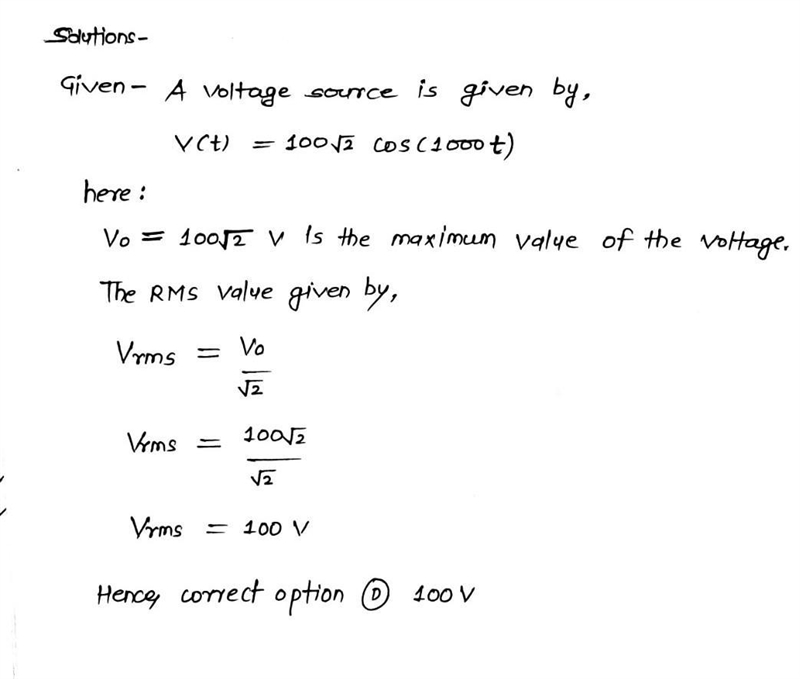 Solutions-
Given - A voltage source is given by,
V(t) = 100√2 cos(1000t)
here :
Vo = 100√2 V is the maximum value of the voltage.
The RMS value given by,
Vrms = Vo/√2
Vrms = 100√2/√2
Vrms = 100 V
Hence, correct option Ⓓ 100 V